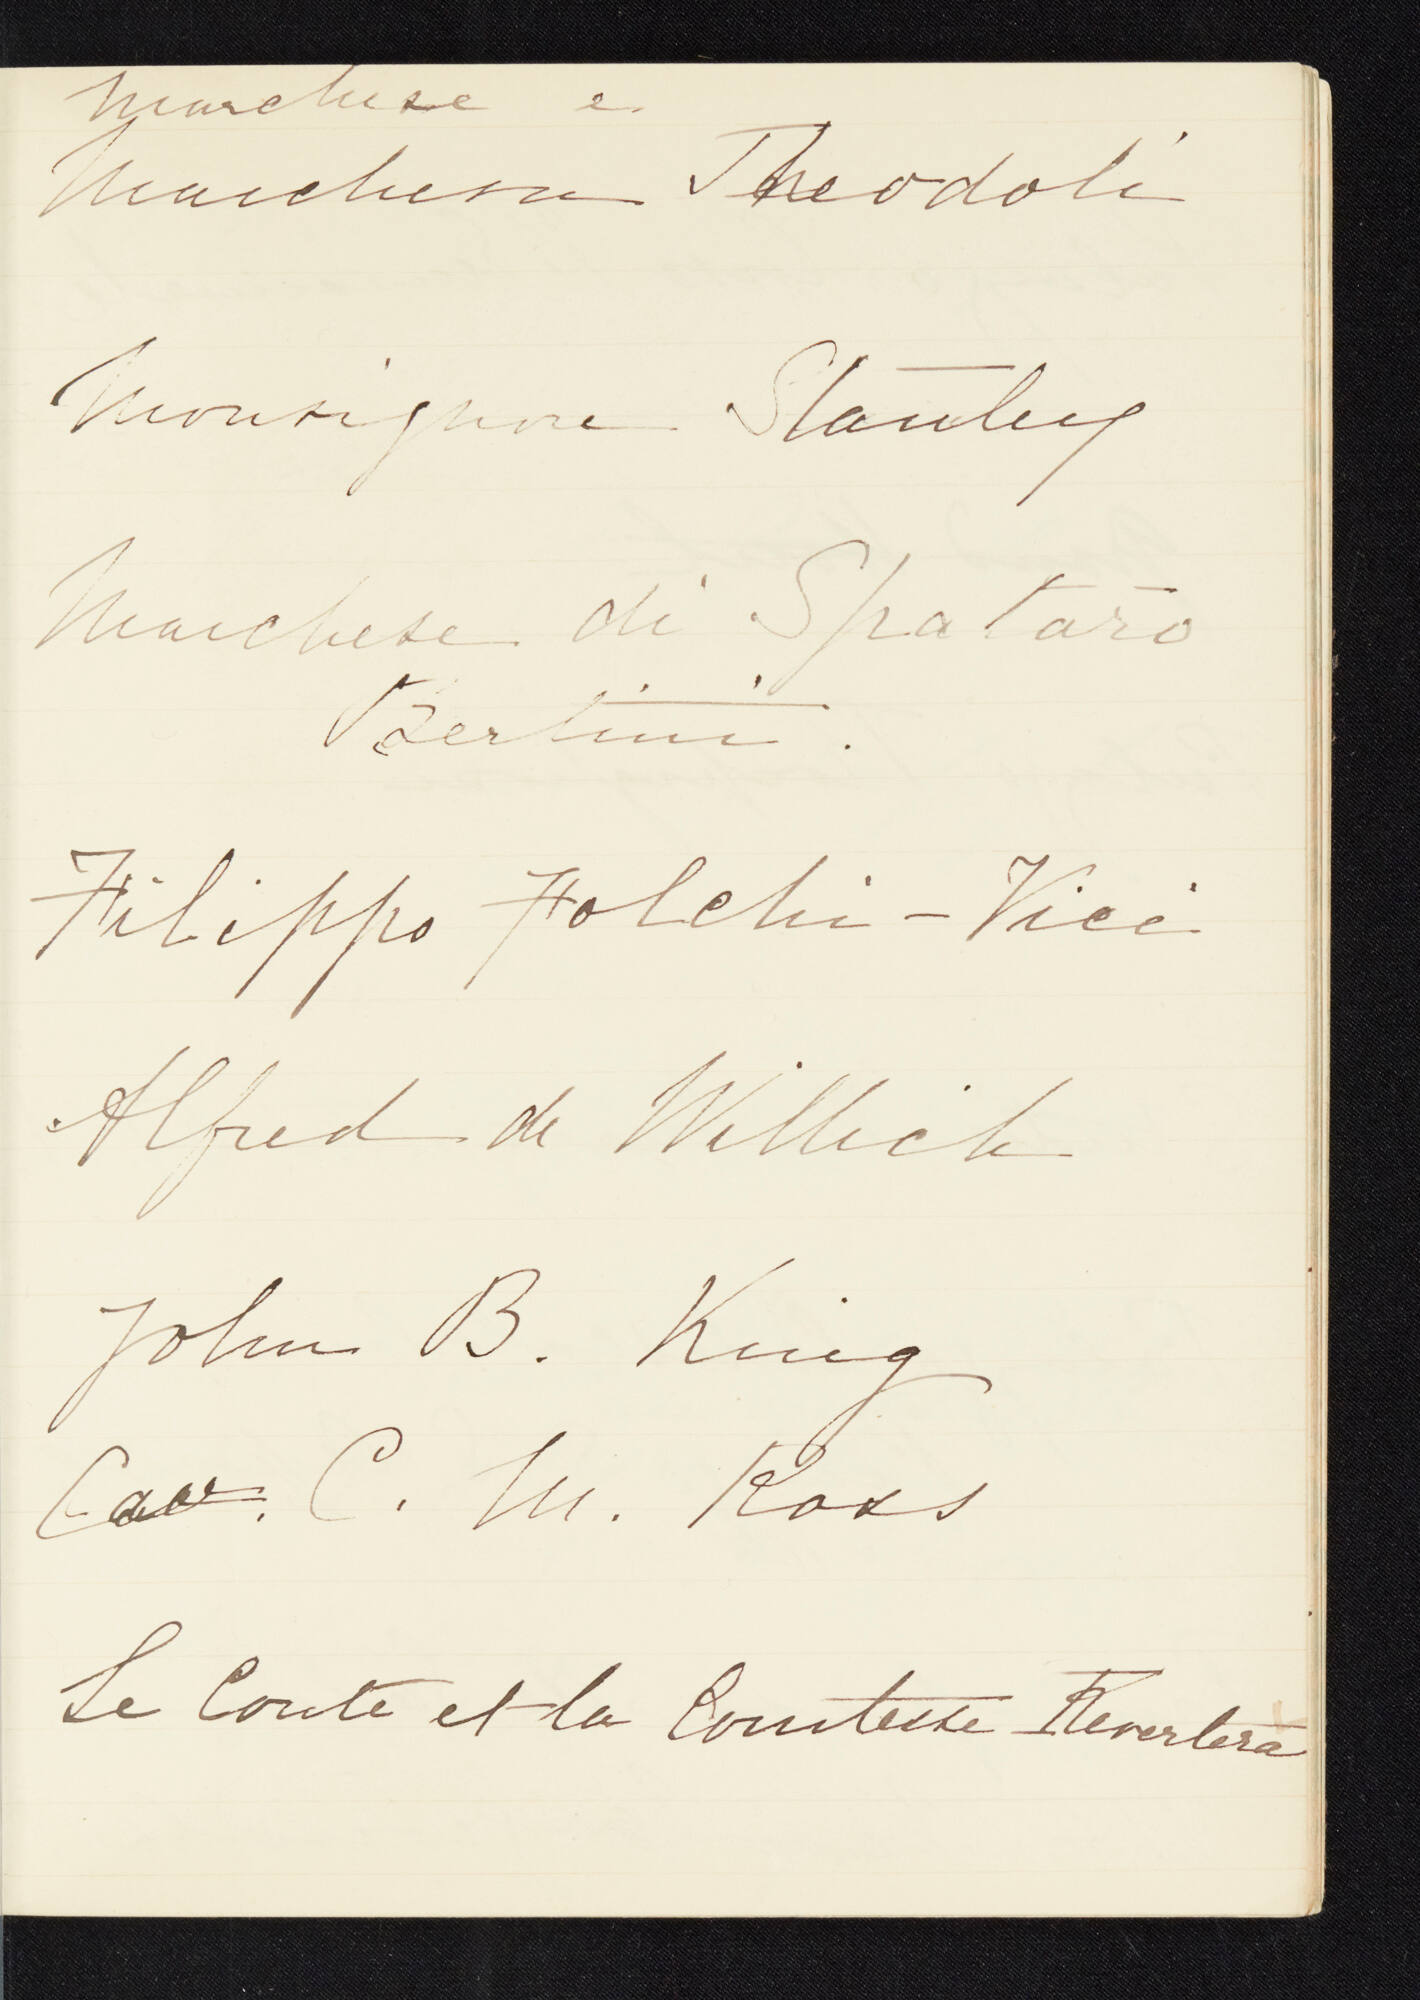 Marchese e
Marchesa Theodoli
Monsignore Stanley
Marchese di Spataro
Bertini.
Filippo Folchi-Vici
Alfred de Willich
John B. King
Cav. C. M. Ross
Le Conte et la Comtesse Revertera